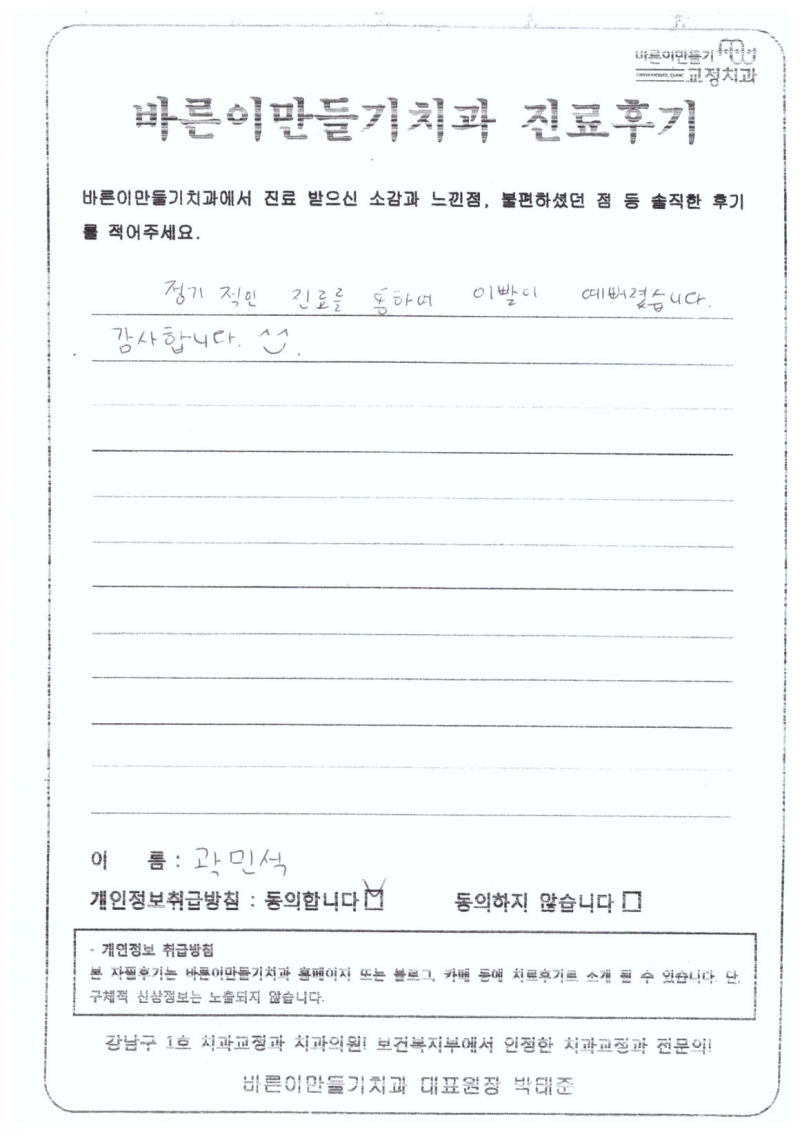 바른이만들기
ORTHODONTIC CLINIC 교정치과
바른이만들기치과 진료후기
바른이만들기치과에서 진료 받으신 소감과 느낀점, 불편하셨던 점 등 솔직한 후기
를 적어주세요.
정기 적인 진료를 통하여 이빨이 예뻐졌습니다.
감사합니다. ^^.
이 름 : 곽민석
개인정보취급방침 : 동의합니다 ☑ 동의하지 않습니다 □
- 개인정보 취급방침
본 자필후기는 바른이만들기치과 홈페이지 또는 블로그, 카페 등에 치료후기로 소개 될 수 있습니다. 단,
구체적 신상정보는 노출되지 않습니다.
강남구 1호 치과교정과 치과의원! 보건복지부에서 인정한 치과교정과 전문의!
바른이만들기치과 대표원장 박태준